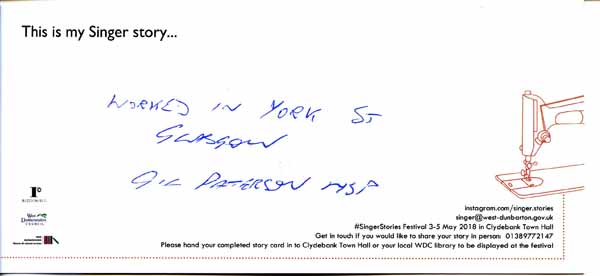 This is my Singer story...
WORKED IN YORK ST
GLASGOW
GIL PATERSON MSP
West
Dunbartonshire
Council
instagram.com/singer.stories
singer@west-dunbarton.gov.uk
#SingerStories Festival 3-5 May 2018 in Clydebank Town Hall
Get in touch if you would like to share your story in person: 01389772147
Please hand your completed story card in to Clydebank Town Hall or your local WDC library to be displayed at the festival